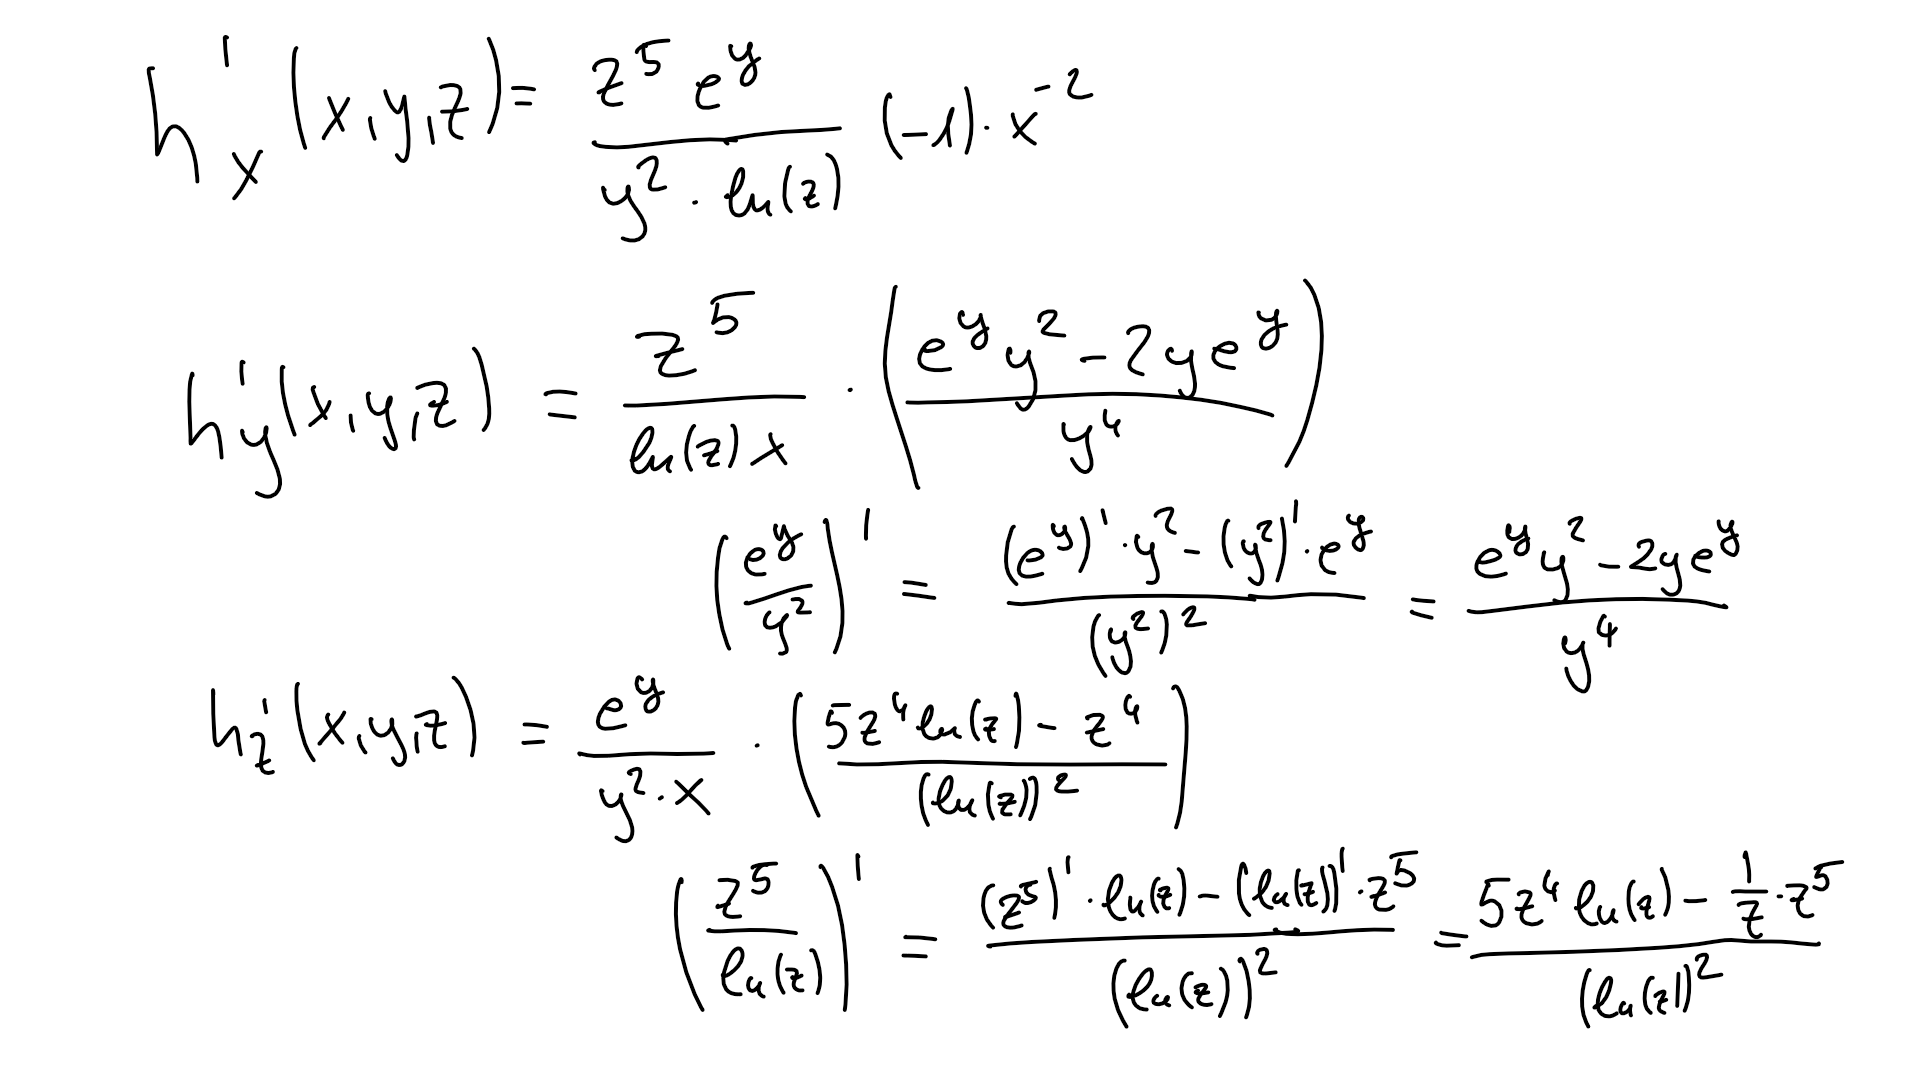 h'_x (x,y,z) = \frac{z^5 e^y}{y^2 \cdot ln(z)} (-1) \cdot x^{-2}
h'_y (x,y,z) = \frac{z^5}{ln(z) x} \cdot \left( \frac{e^y y^2 - 2y e^y}{y^4} \right)
\left( \frac{e^y}{y^2} \right)' = \frac{(e^y)' \cdot y^2 - (y^2)' \cdot e^y}{(y^2)^2} = \frac{e^y y^2 - 2y e^y}{y^4}
h'_z (x,y,z) = \frac{e^y}{y^2 \cdot x} \cdot \left( \frac{5z^4 ln(z) - z^4}{(ln(z))^2} \right)
\left( \frac{z^5}{ln(z)} \right)' = \frac{(z^5)' \cdot ln(z) - (ln(z))' \cdot z^5}{(ln(z))^2} = \frac{5z^4 ln(z) - \frac{1}{z} \cdot z^5}{(ln(z))^2}